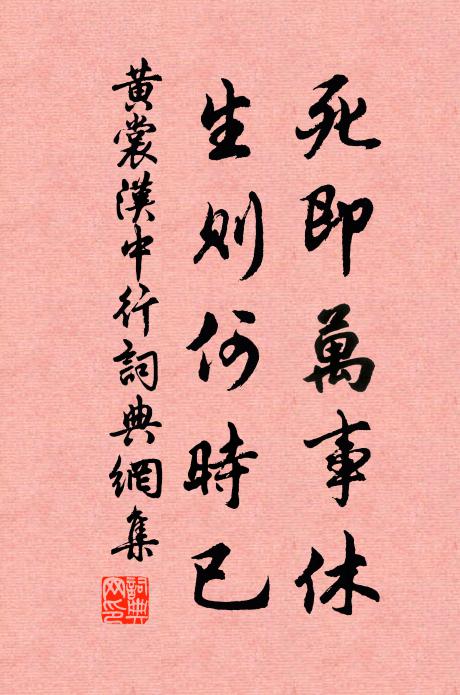 死即萬事休
生則何時已
黃裳漢中行詞典網集
詞典網印